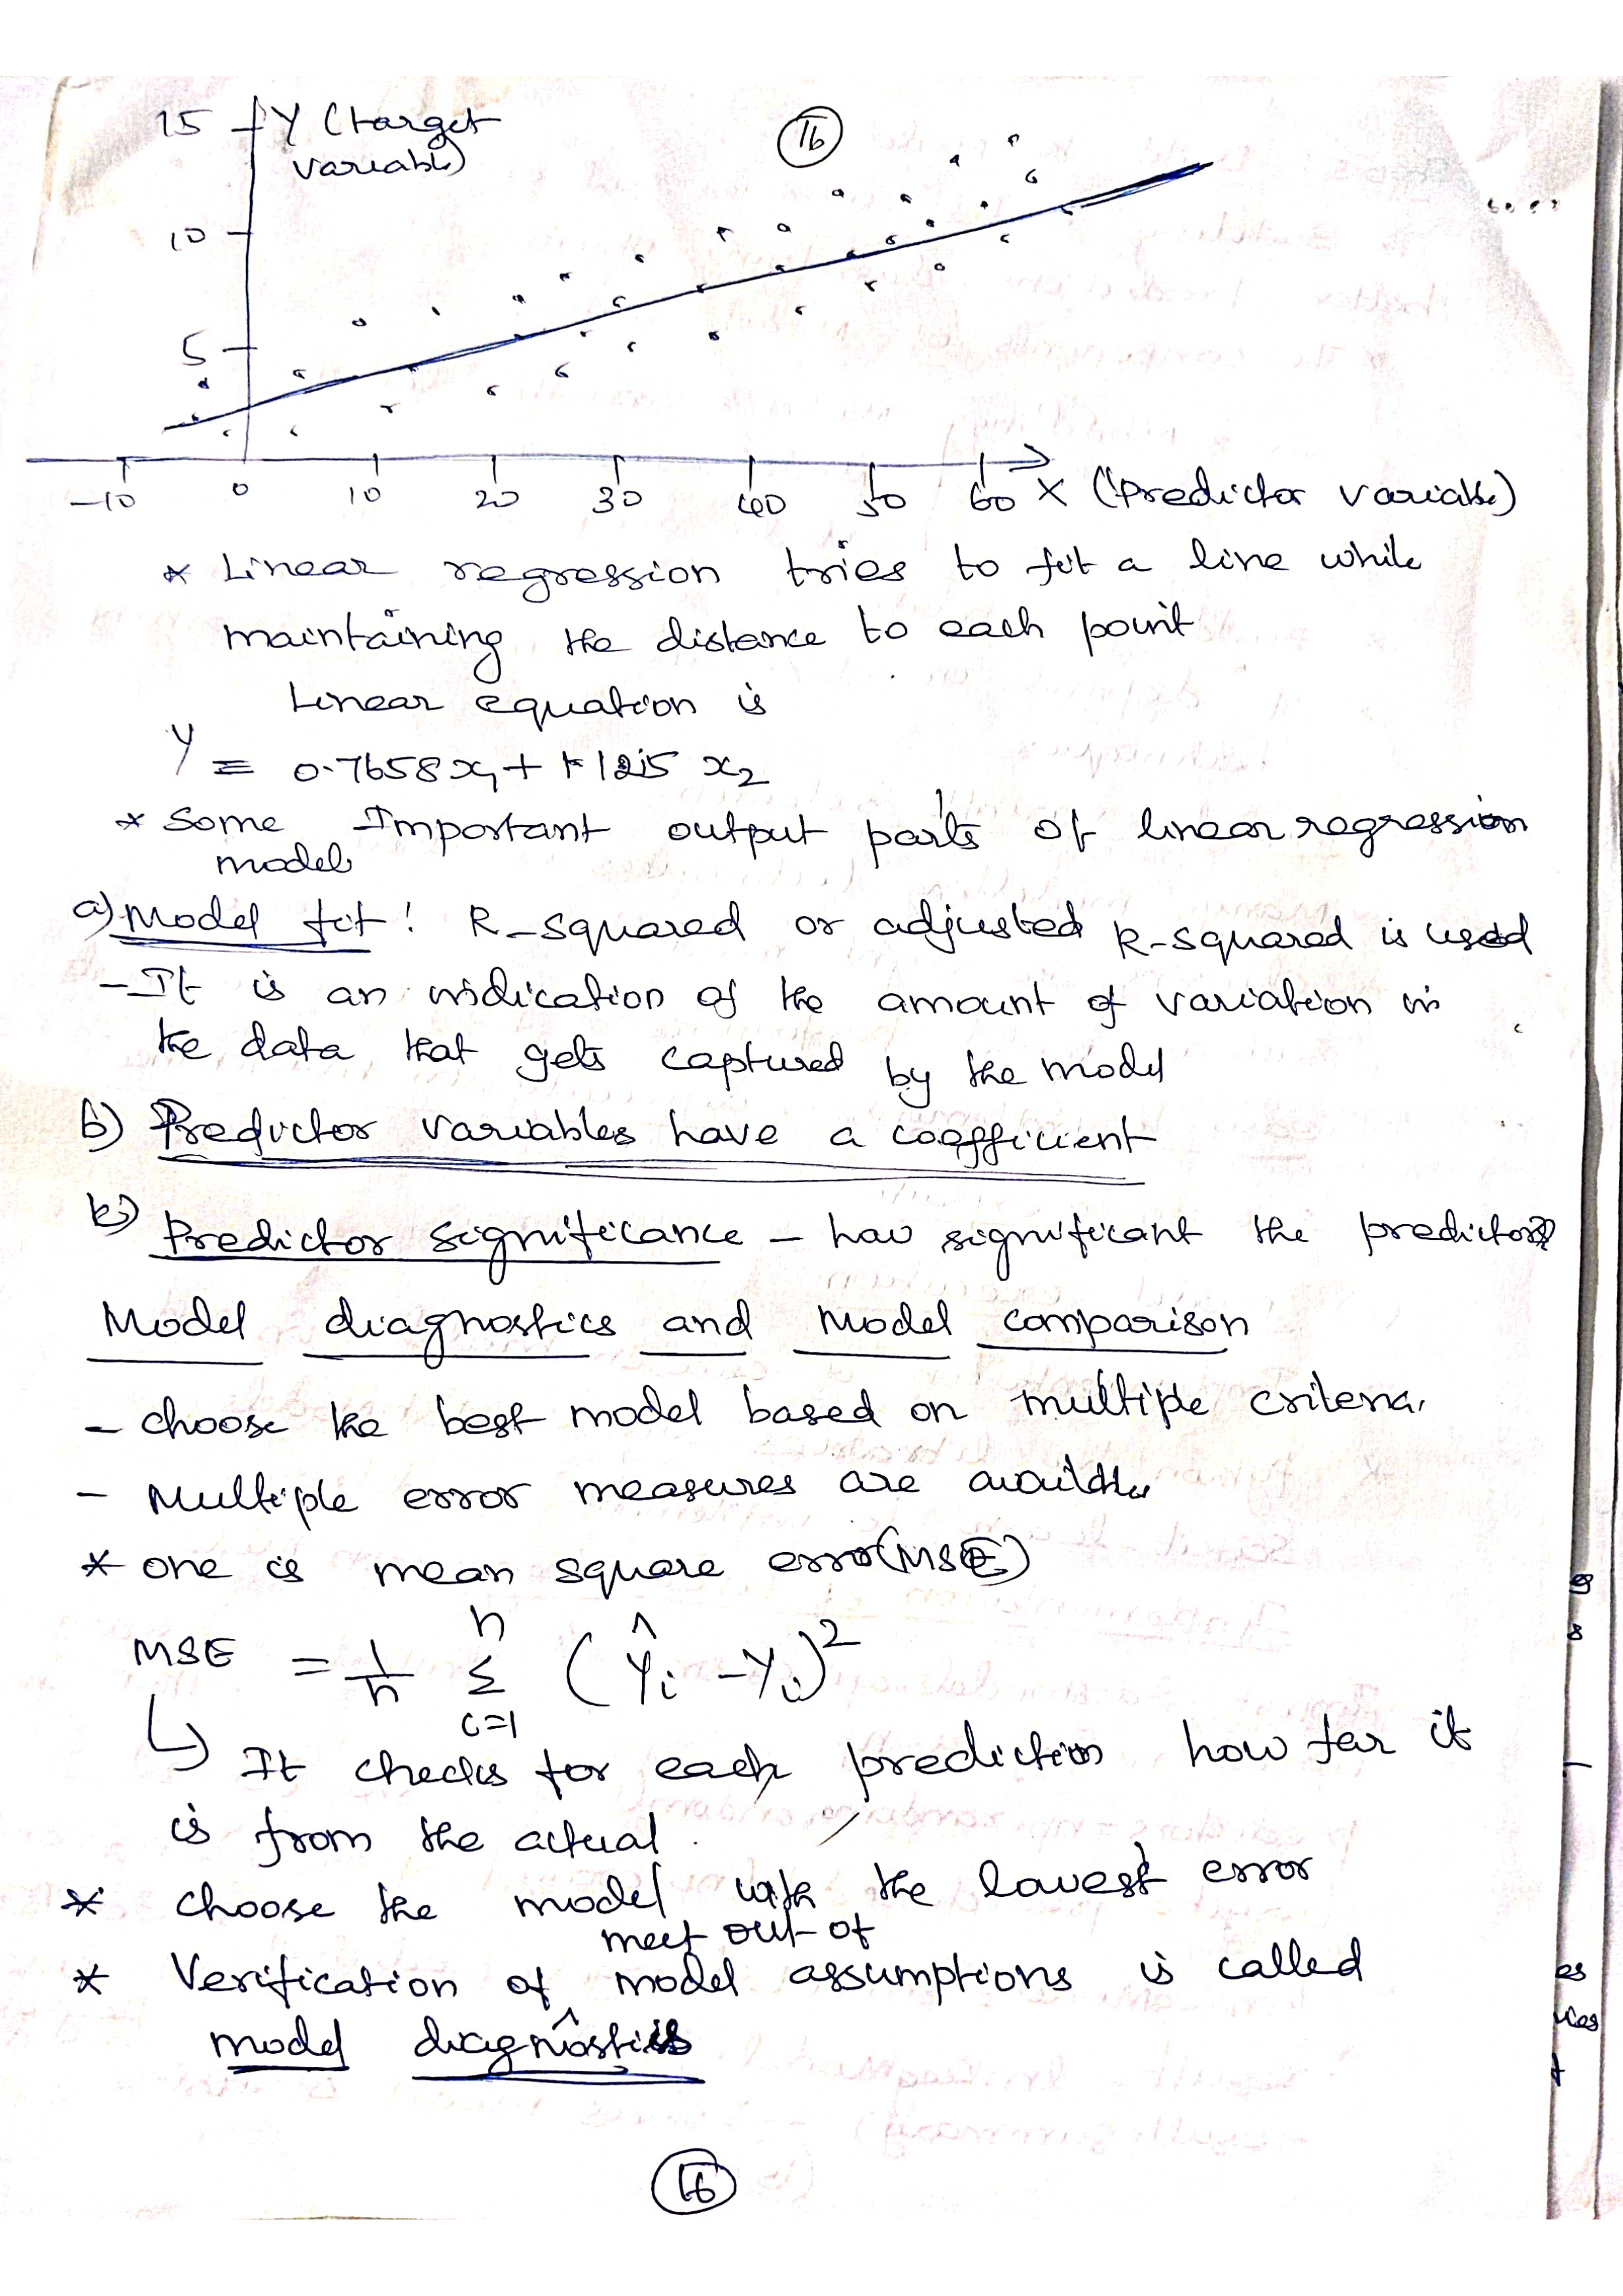 15 Y (target
variable)
16
10
5
-10 0 10 20 30 40 50 60 X (Predictor variable)
* Linear regression tries to fit a line while
maintaining the distance to each point
Linear equation is
Y = 0.7658x1 + 1.125 x2
* Some Important output parts of linear regression
model
a) Model fit: R-squared or adjusted R-squared is used
- It is an indication of the amount of variation in
the data that gets captured by the model
b) Predictor variables have a coefficient
c) Predictor significance - how significant the predictor
Model diagnostics and Model comparison
- choose the best model based on multiple criteria.
- Multiple error measures are available
* one is mean square error (MSE)
MSE = 1/n Σ i=1 n (Ŷi - Yi)²
↳ It checks for each prediction how far it
is from the actual.
* choose the model with the lowest error
meet out of
* Verification of ^ model assumptions is called
model diagnostics
16